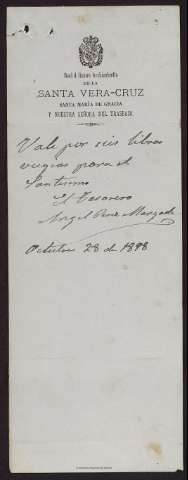 Real é Ilustre Archicofradía
DE LA
SANTA VERA-CRUZ
SANTA MARÍA DE GRACIA
Y NUESTRA SEÑORA DEL TRASPASO.
Vale por seis libras
vugias para el
Santisimo
El Tesorero
Angel Perez
Octubre 28 de 1898